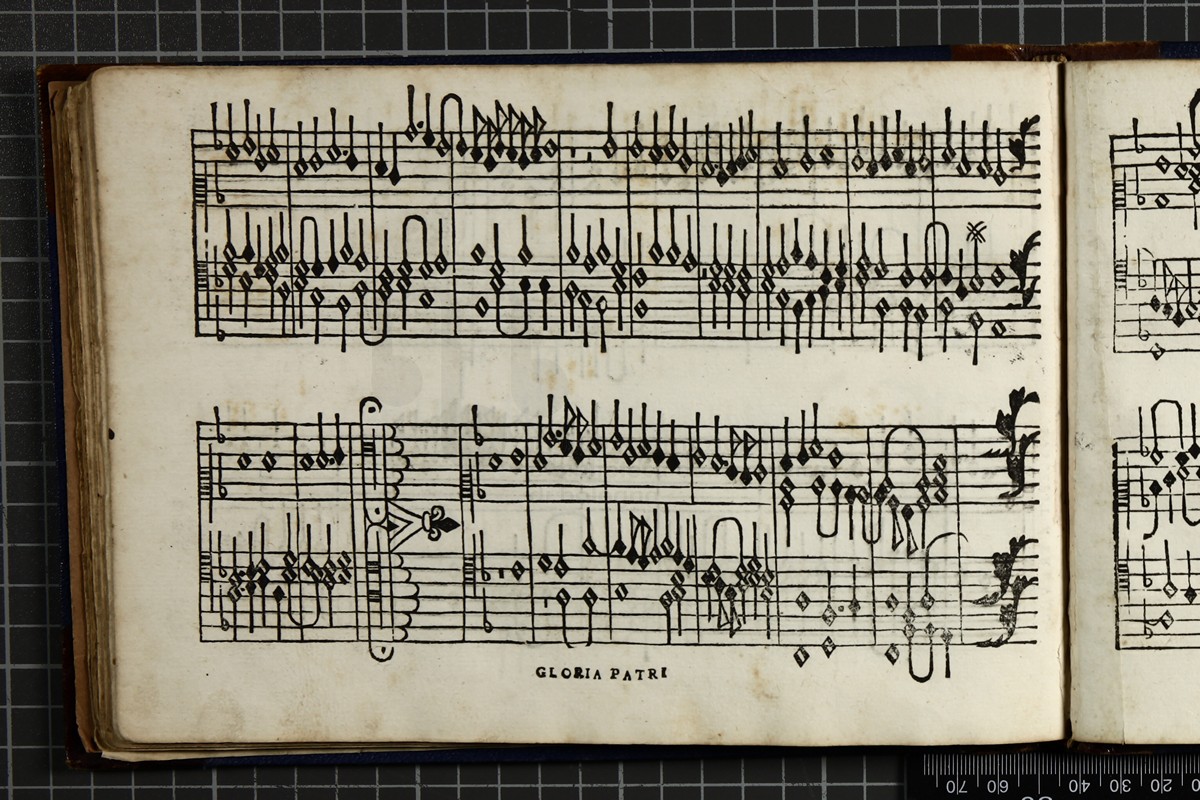 GLORIA PATRI
70 60 40 30 20